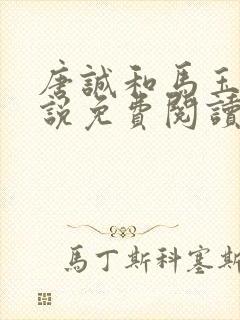 唐誠和馬玉
說免費閱讀
馬丁斯科塞斯